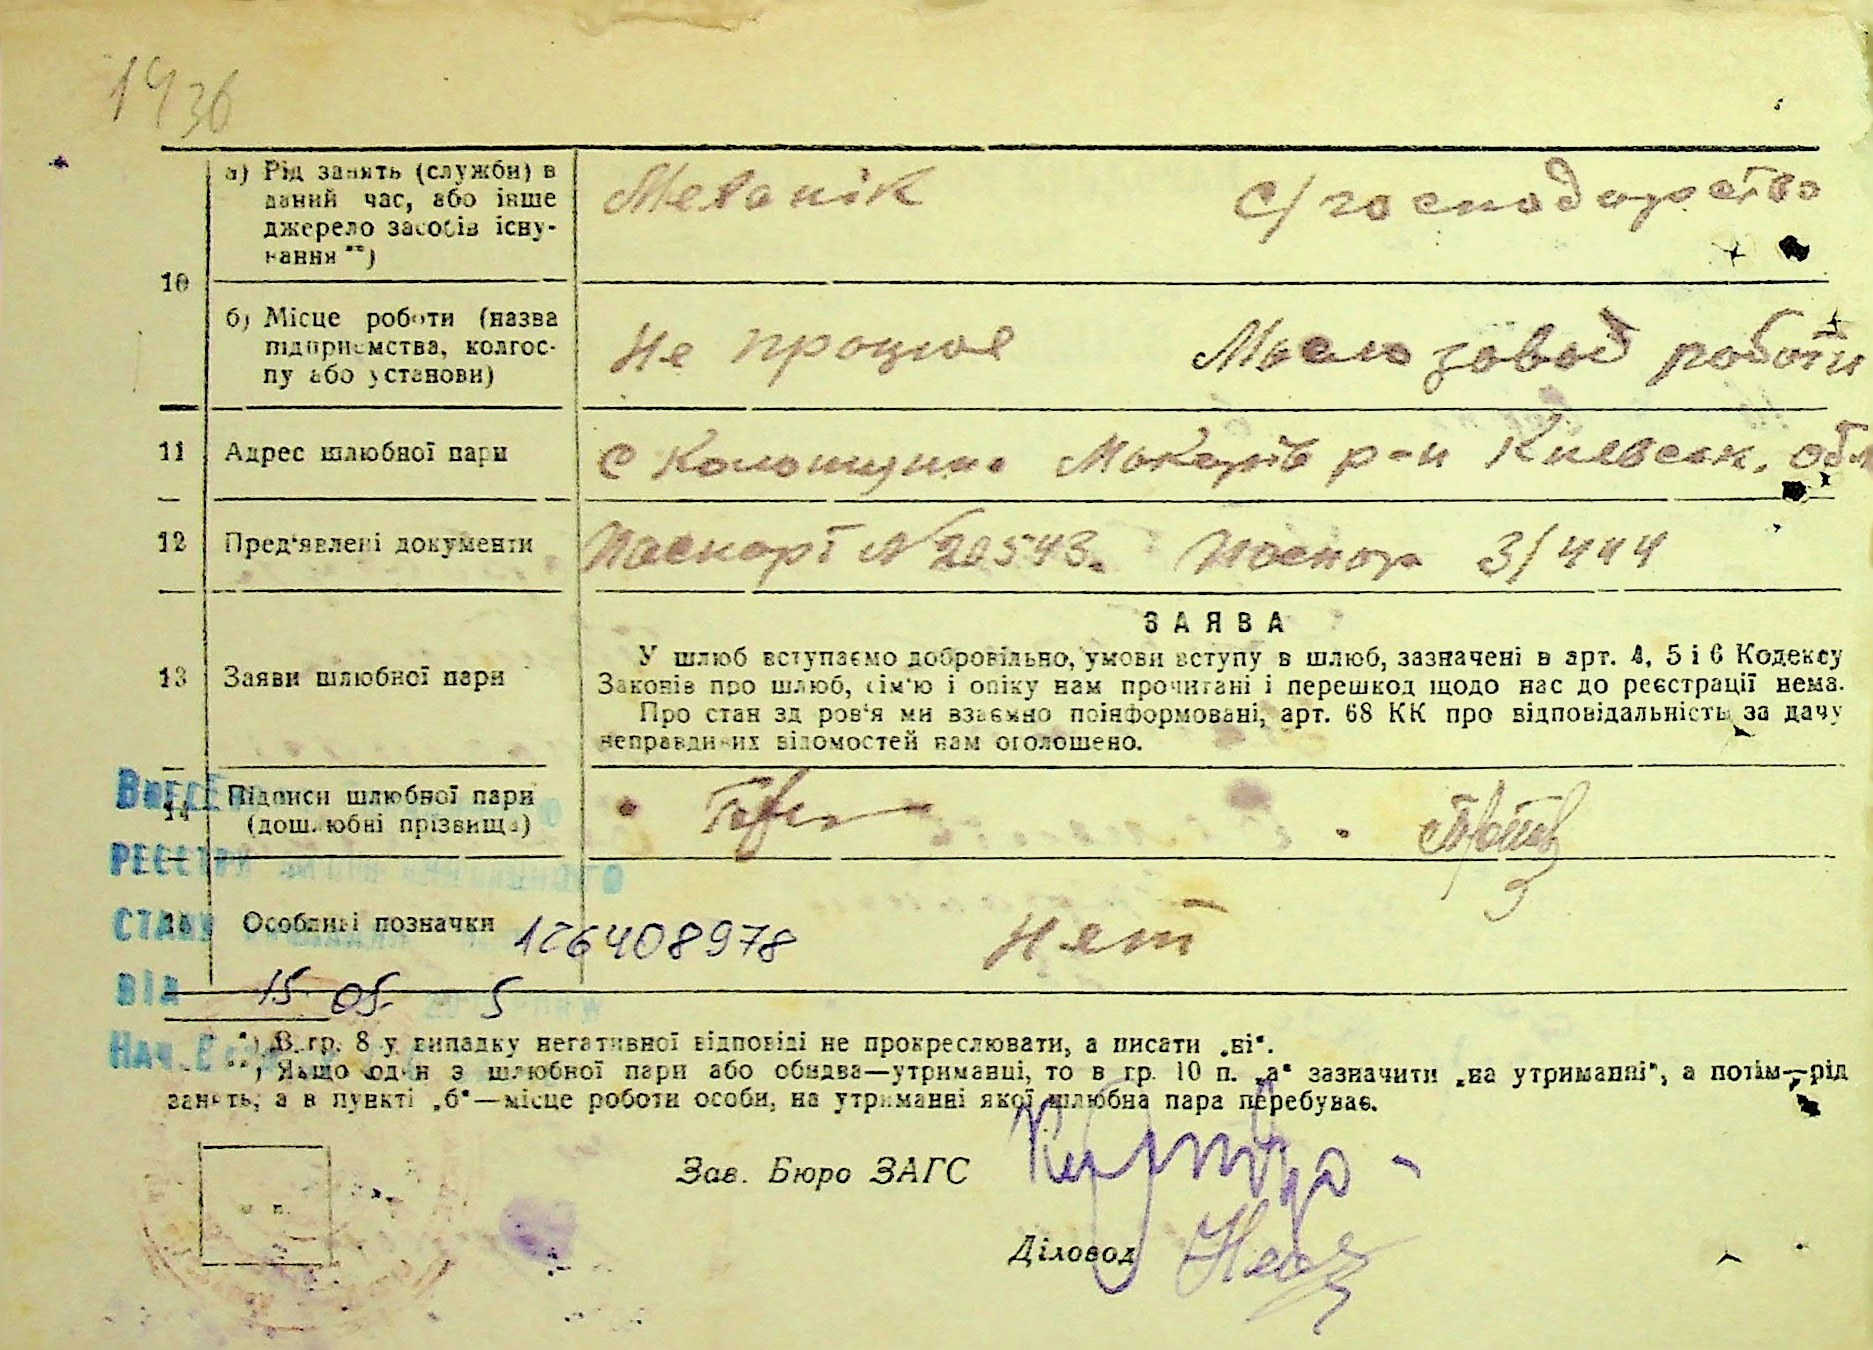 1936
а) Рід занять (служби) в
даний час, або інше
джерело засобів існу-
вання **)
Механік С/господарство
10
б) Місце роботи (назва
підприємства, колгос-
пу або установи)
Не працює Масло завод роботи
11 Адрес шлюбної пари
с Колонщина Макарів р-н Киевськ. обл
12 Пред'явлені документи
Паспорт № 20543. Паспор 3/444
ЗАЯВА
13 Заяви шлюбної пари
У шлюб вступаємо добровільно, умови вступу в шлюб, зазначені в арт. 4, 5 і 6 Кодексу
Законів про шлюб, сім'ю і опіку нам прочитані і перешкод щодо нас до реєстрації нема.
Про стан здоров'я ми взаємно поінформовані, арт. 68 КК про відповідальність за дачу
неправдивих відомостей нам оголошено.
14 Підписи шлюбної пари
(дошлюбні прізвища)
Внесено
Реєстру
15 Особливі позначки 126408978 Нет
стану
від 15 05 5
Нач.
*) В гр. 8 у випадку негативної відповіді не прокреслювати, а писати „ні“.
**) Якщо один з шлюбної пари або обидва—утриманці, то в гр. 10 п. „а“ зазначити „на утриманні“, а потім—рід
занять, а в пункті „б“—місце роботи особи, на утриманні якої шлюбна пара перебуває.
м. п.
Зав. Бюро ЗАГС
Діловод